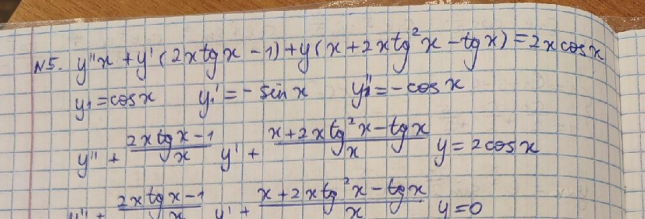 N5. y''x + y'(2xtgx - 1) + y(x + 2xtg²x - tgx) = 2xcosx
y₁ = cosx y₁' = - sinx y₁'' = - cosx
y'' + (2xtgx - 1)/x y' + (x + 2xtg²x - tgx)/x y = 2cosx
y'' + (2xtgx - 1)/x y' + (x + 2xtg²x - tgx)/x y = 0